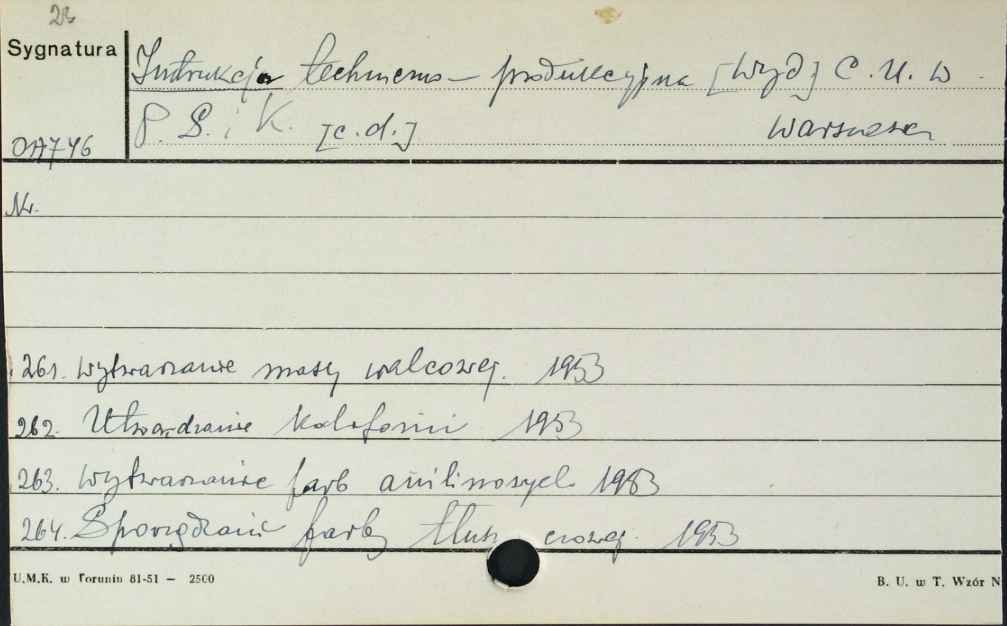 23
Sygnatura
Instrukcja techniczno-produkcyjna [Wyd] C. U. W.
P. S. i K. [c.d.] Warszawa
OA746
Nr.
261. Wytwarzanie masy walcowej. 1953
262. Utwardzanie Kalafonii 1953
263. Wytwarzanie farb anilinowych 1953
264. Sporządzanie farby tłuszczowej. 1953
U.M.K. w Toruniu 81-51 — 2500
B. U. w T. Wzór N